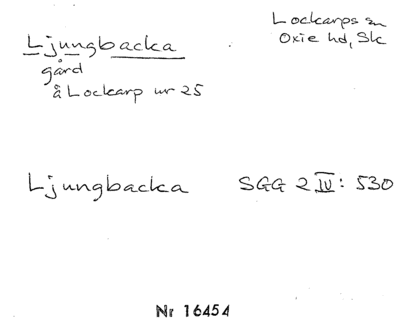 Ljungbacka
gård
å Lockarp nr 25
Lockarps sn
Oxie hd, Sk
Ljungbacka SGG 2 IV: 530
Nr 16454